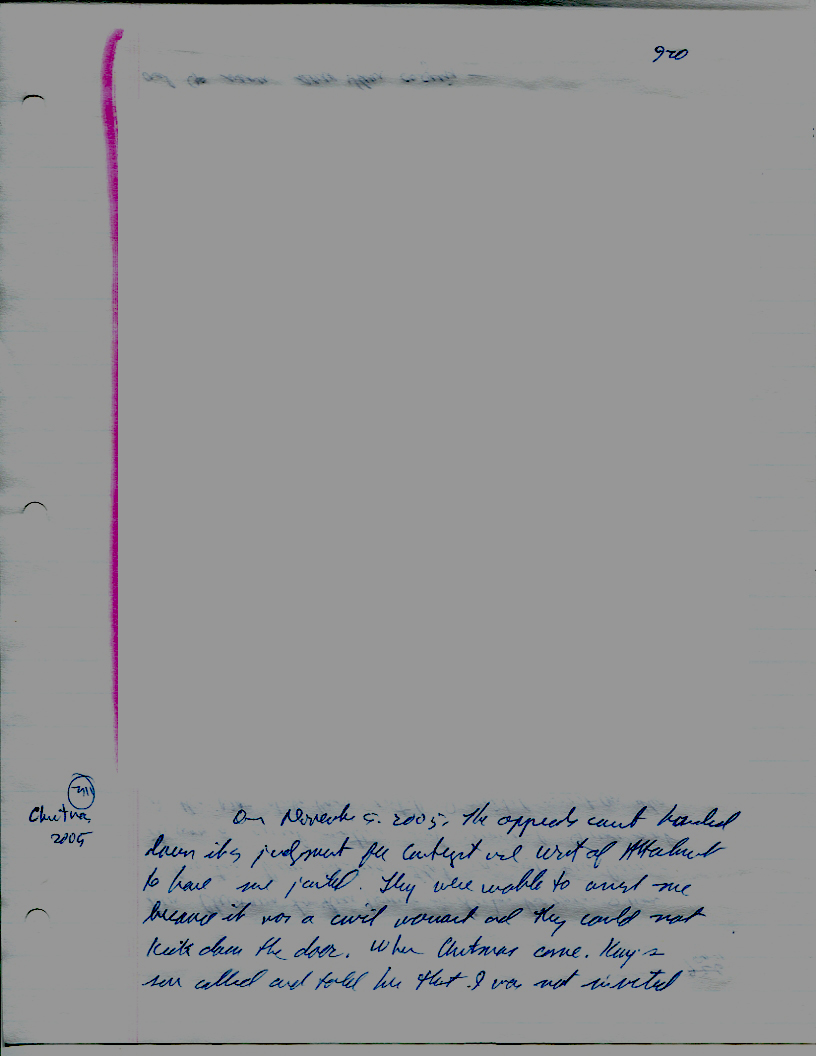 920
Christmas
2005
On November 5, 2005, the appeals court handed
down its judgment for Contempt and writ of Attachment
to have me jailed. They were unable to arrest me
because it was a civil warrant and they could not
kick down the door. When Christmas came,
son called and told her that I was not invited